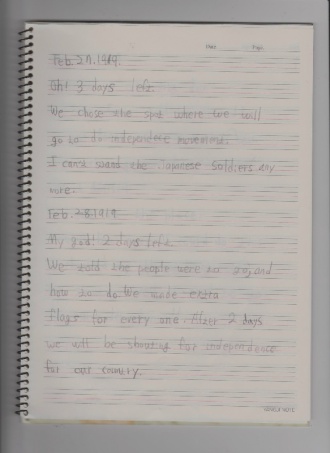 Feb. 27. 1919.
Uh! 3 days left.
We chose the spot where we will
go to do independete movement.
I can't stand the Japanese soldiers any
more.
Feb. 28. 1919
My god! 2 days left.
We told the people were to stand
how to do. We made extra
flags for every one. After 2 days
we will be shouting for independence
for our country.